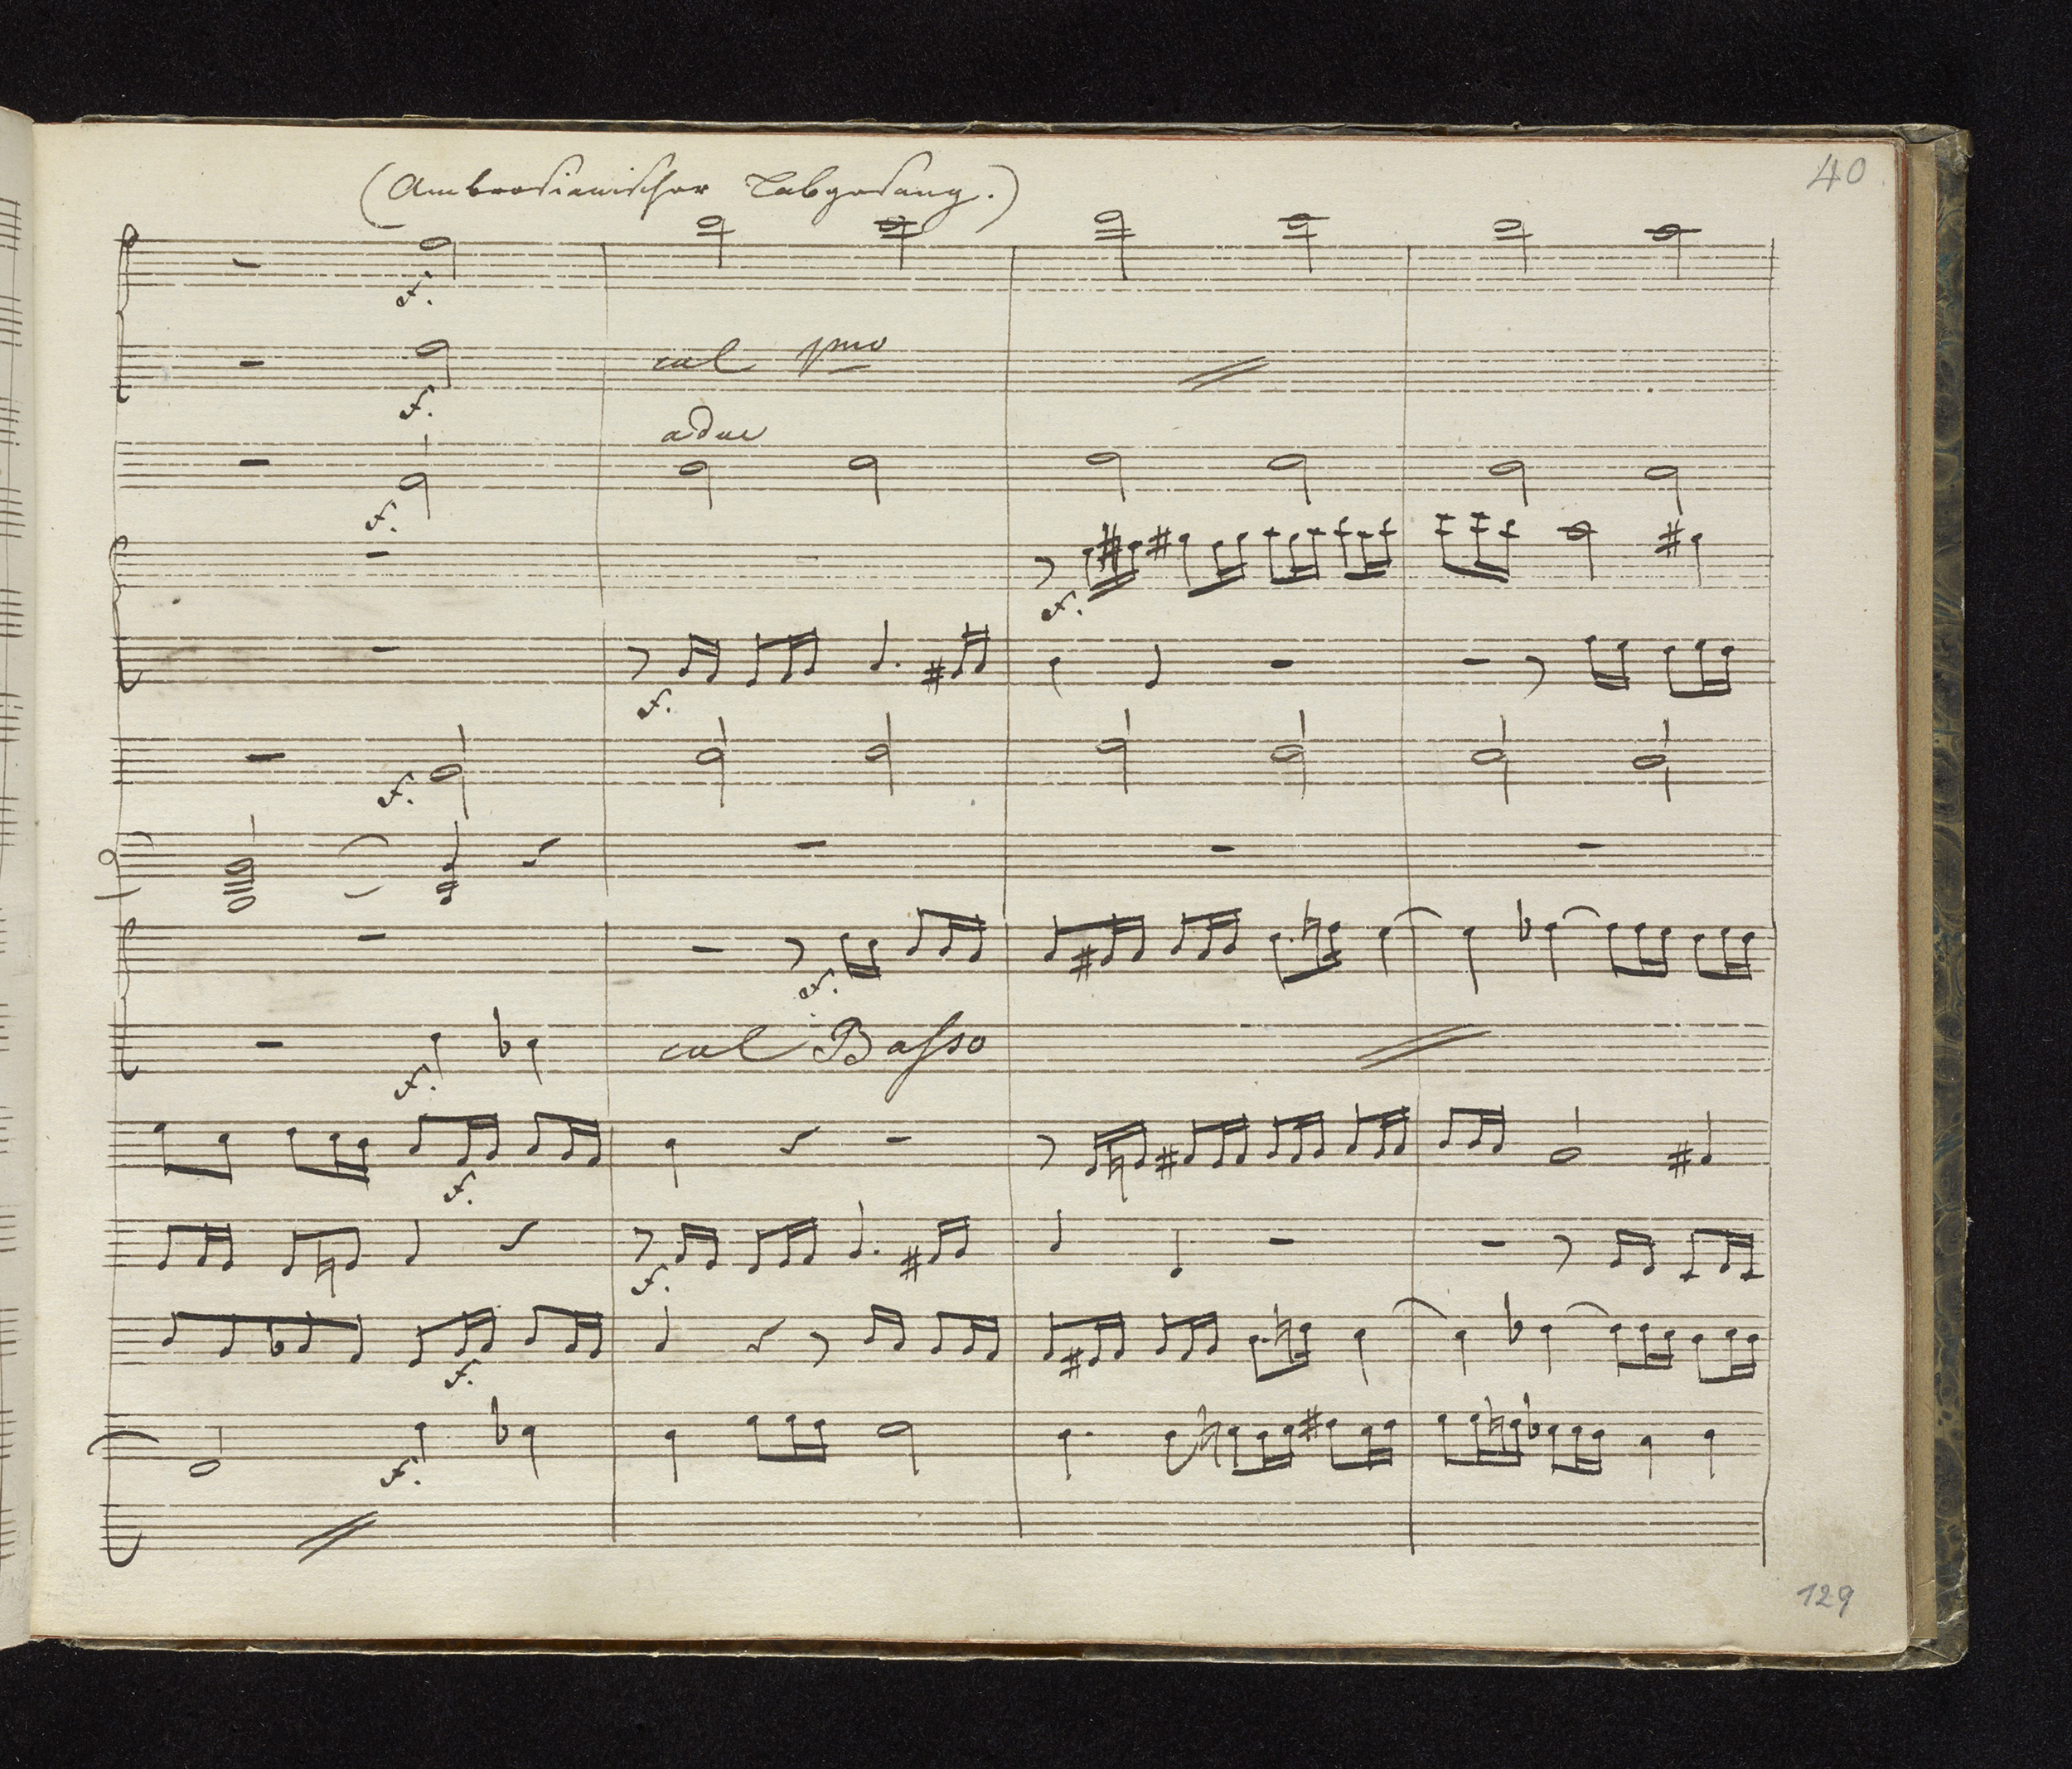 40
(Ambrosianischer Lobgesang.)
f.
col pmo
f.
a due
f.
f.
f.
f.
f.
col Basso
f.
f.
f.
f.
f.
129